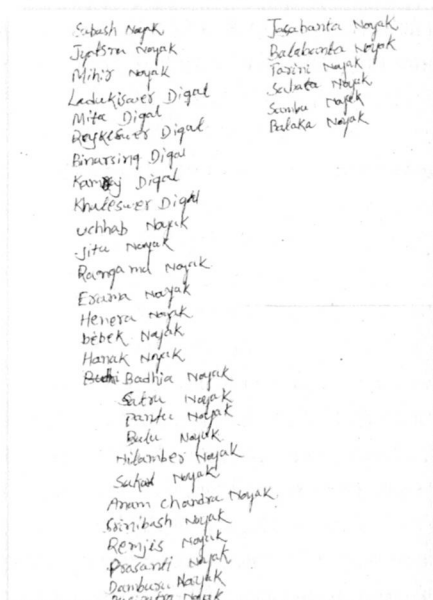 Subash Nayak
Jyotsra Nayak
Mihir Nayak
Ladukiswer Digal
Mita Digal
Digal
Binarsing Digal
Kamraj Digal
Khaleswer Digal
uchhab Nayak
Jitu Nayak
Rangama Nayak
Erama Nayak
Henera Nayak
bebek Nayak
Hanak Nayak
Badhia Nayak
Satru Nayak
Pantu Nayak
Bulu Nayak
Nilamber Nayak
Nayak
Anam Chandra Nayak
Srinibash Nayak
Remjis Nayak
Prasanti Nayak
Damburu Nayak
Nayak
Jasabanta Nayak
Balabanta Nayak
Tarini Nayak
Nayak
Sambu Nayak
Balaka Nayak